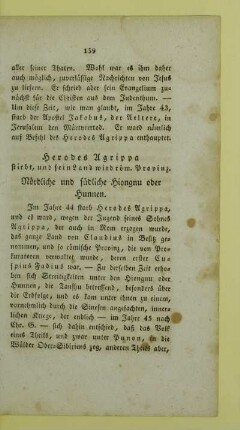 159
aller seiner Thaten. Wohl war es ihm daher
auch möglich, zuverlässige Nachrichten von Jesus
zu liefern. Er schrieb aber sein Evangelium zu-
nächst für die Christen aus dem Judenthum. —
Um diese Zeit, wie man glaubt, im Jahre 43,
starb der Apostel Jakobus, der Aeltere, in
Jerusalem den Märtyrertod. Er ward nämlich
auf Befehl des Herodes Agrippa enthauptet.
Herodes Agrippa
stirbt, und sein Land wird röm. Provinz.
Nördliche und südliche Hiongnu oder
Hunnen.
Im Jahre 44 starb Herodes Agrippa,
und es ward, wegen der Jugend seines Sohnes
Agrippa, der auch in Rom erzogen wurde,
das ganze Land von Claudius in Besitz ge-
nommen, und so römische Provinz, die von Pro-
kuratoren verwaltet wurde, deren erster Cu-
spius Fadius war. — Zu derselben Zeit erho-
ben sich Streitigkeiten unter den Hiongnu oder
Hunnen, die Tanshu betreffend, besonders über
die Erbfolge, und es kam unter ihnen zu einem,
wahrscheinlich durch die Sinesen angefachten, innern-
lichen Kriege, der endlich — im Jahre 45 nach
Chr. G. — sich dahin entschied, daß das Volk
eines Theils, und zwar unter Punon, in die
Wälder Ober-Sibiriens zog, anderen Theils aber,